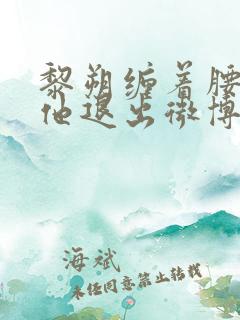 黎朔缠着腰
他退出微博
海斌
未经同意禁止转载